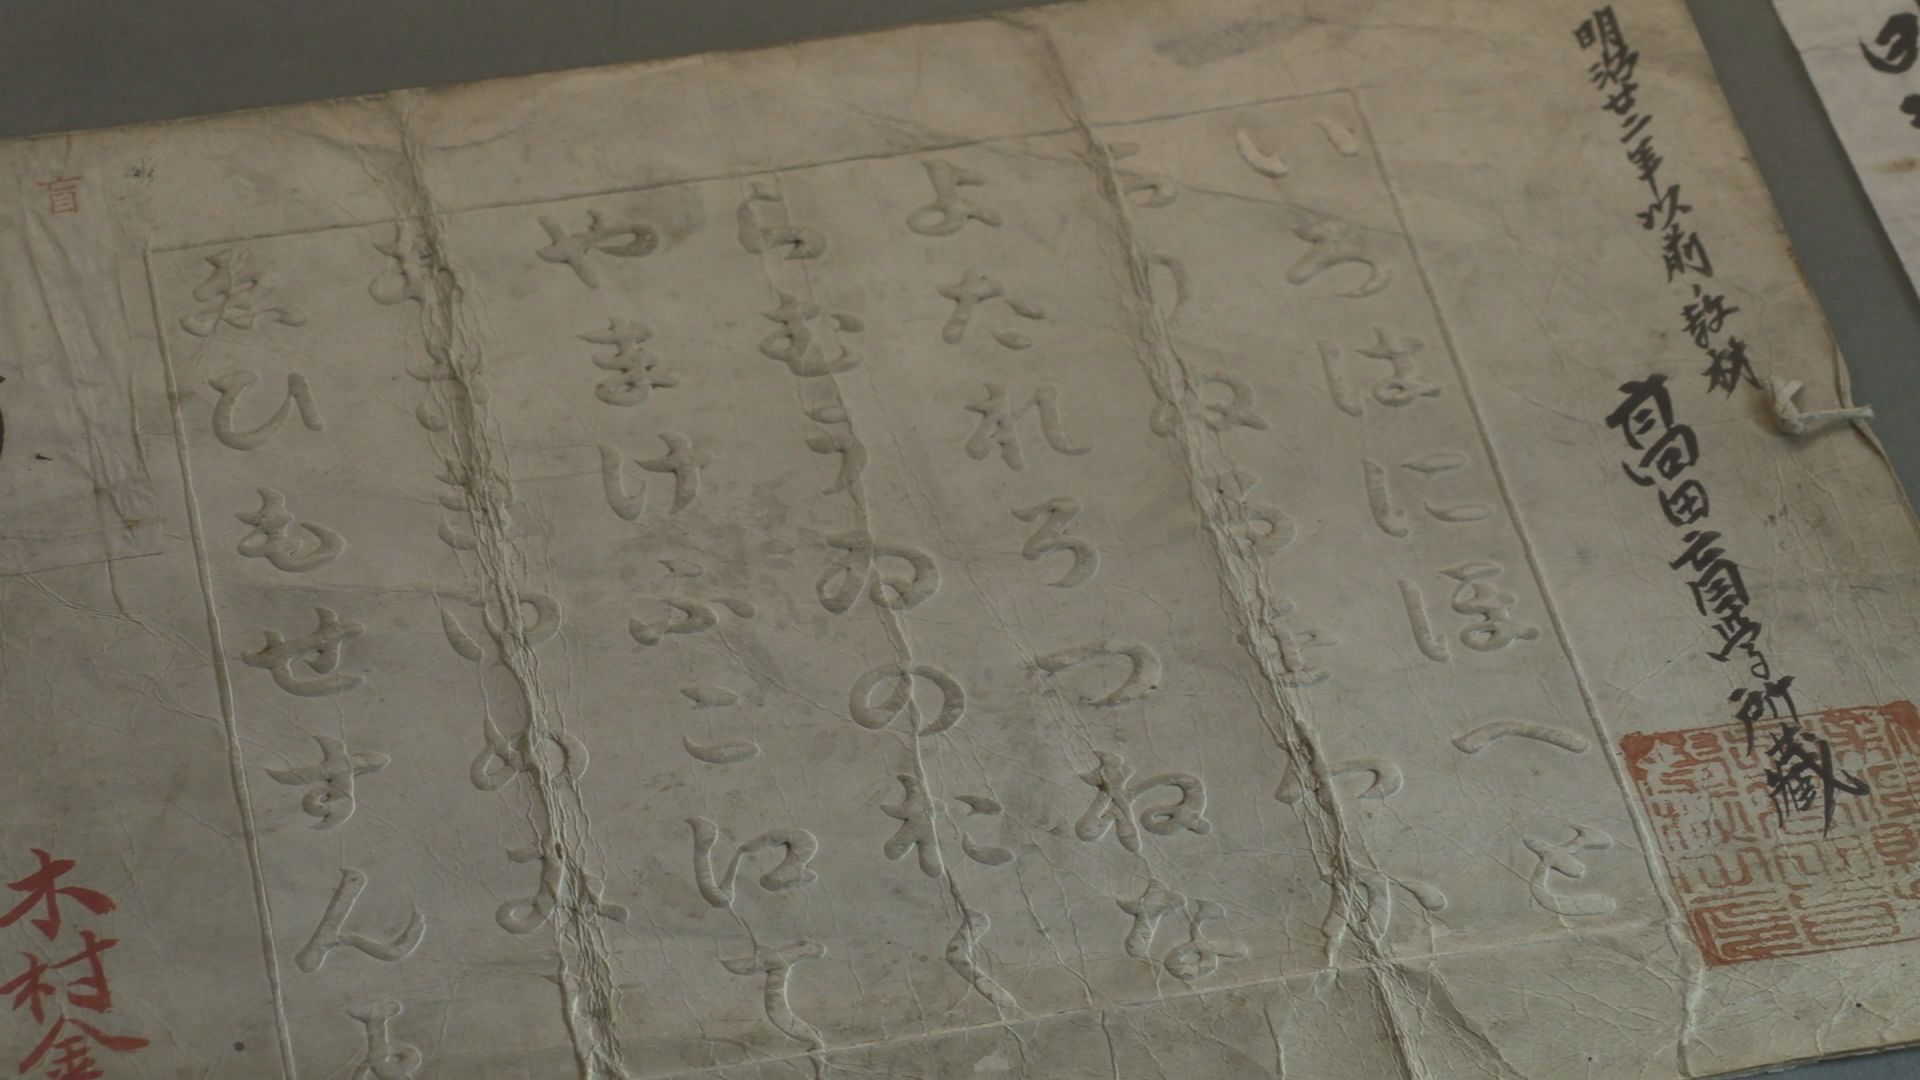 明治廿二年以前 教材
髙田盲学所藏
いろはにほへと
ちりぬるをわか
よたれそつねな
らむうゐのおく
やまけふこ江て
あさきゆめみ
ゑひもせすん
盲
木村金